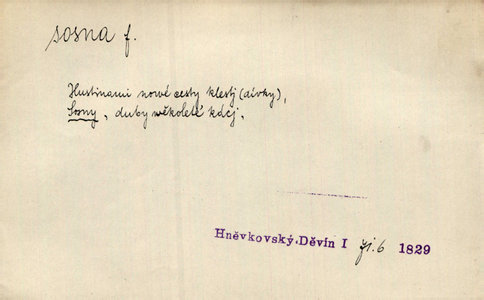 sosna f.
Hustinami nowé cesty klestj (dívky),
Sosny, duby wěkoleté kácj.
Hněvkovský, Děvín I zj. 6 1829